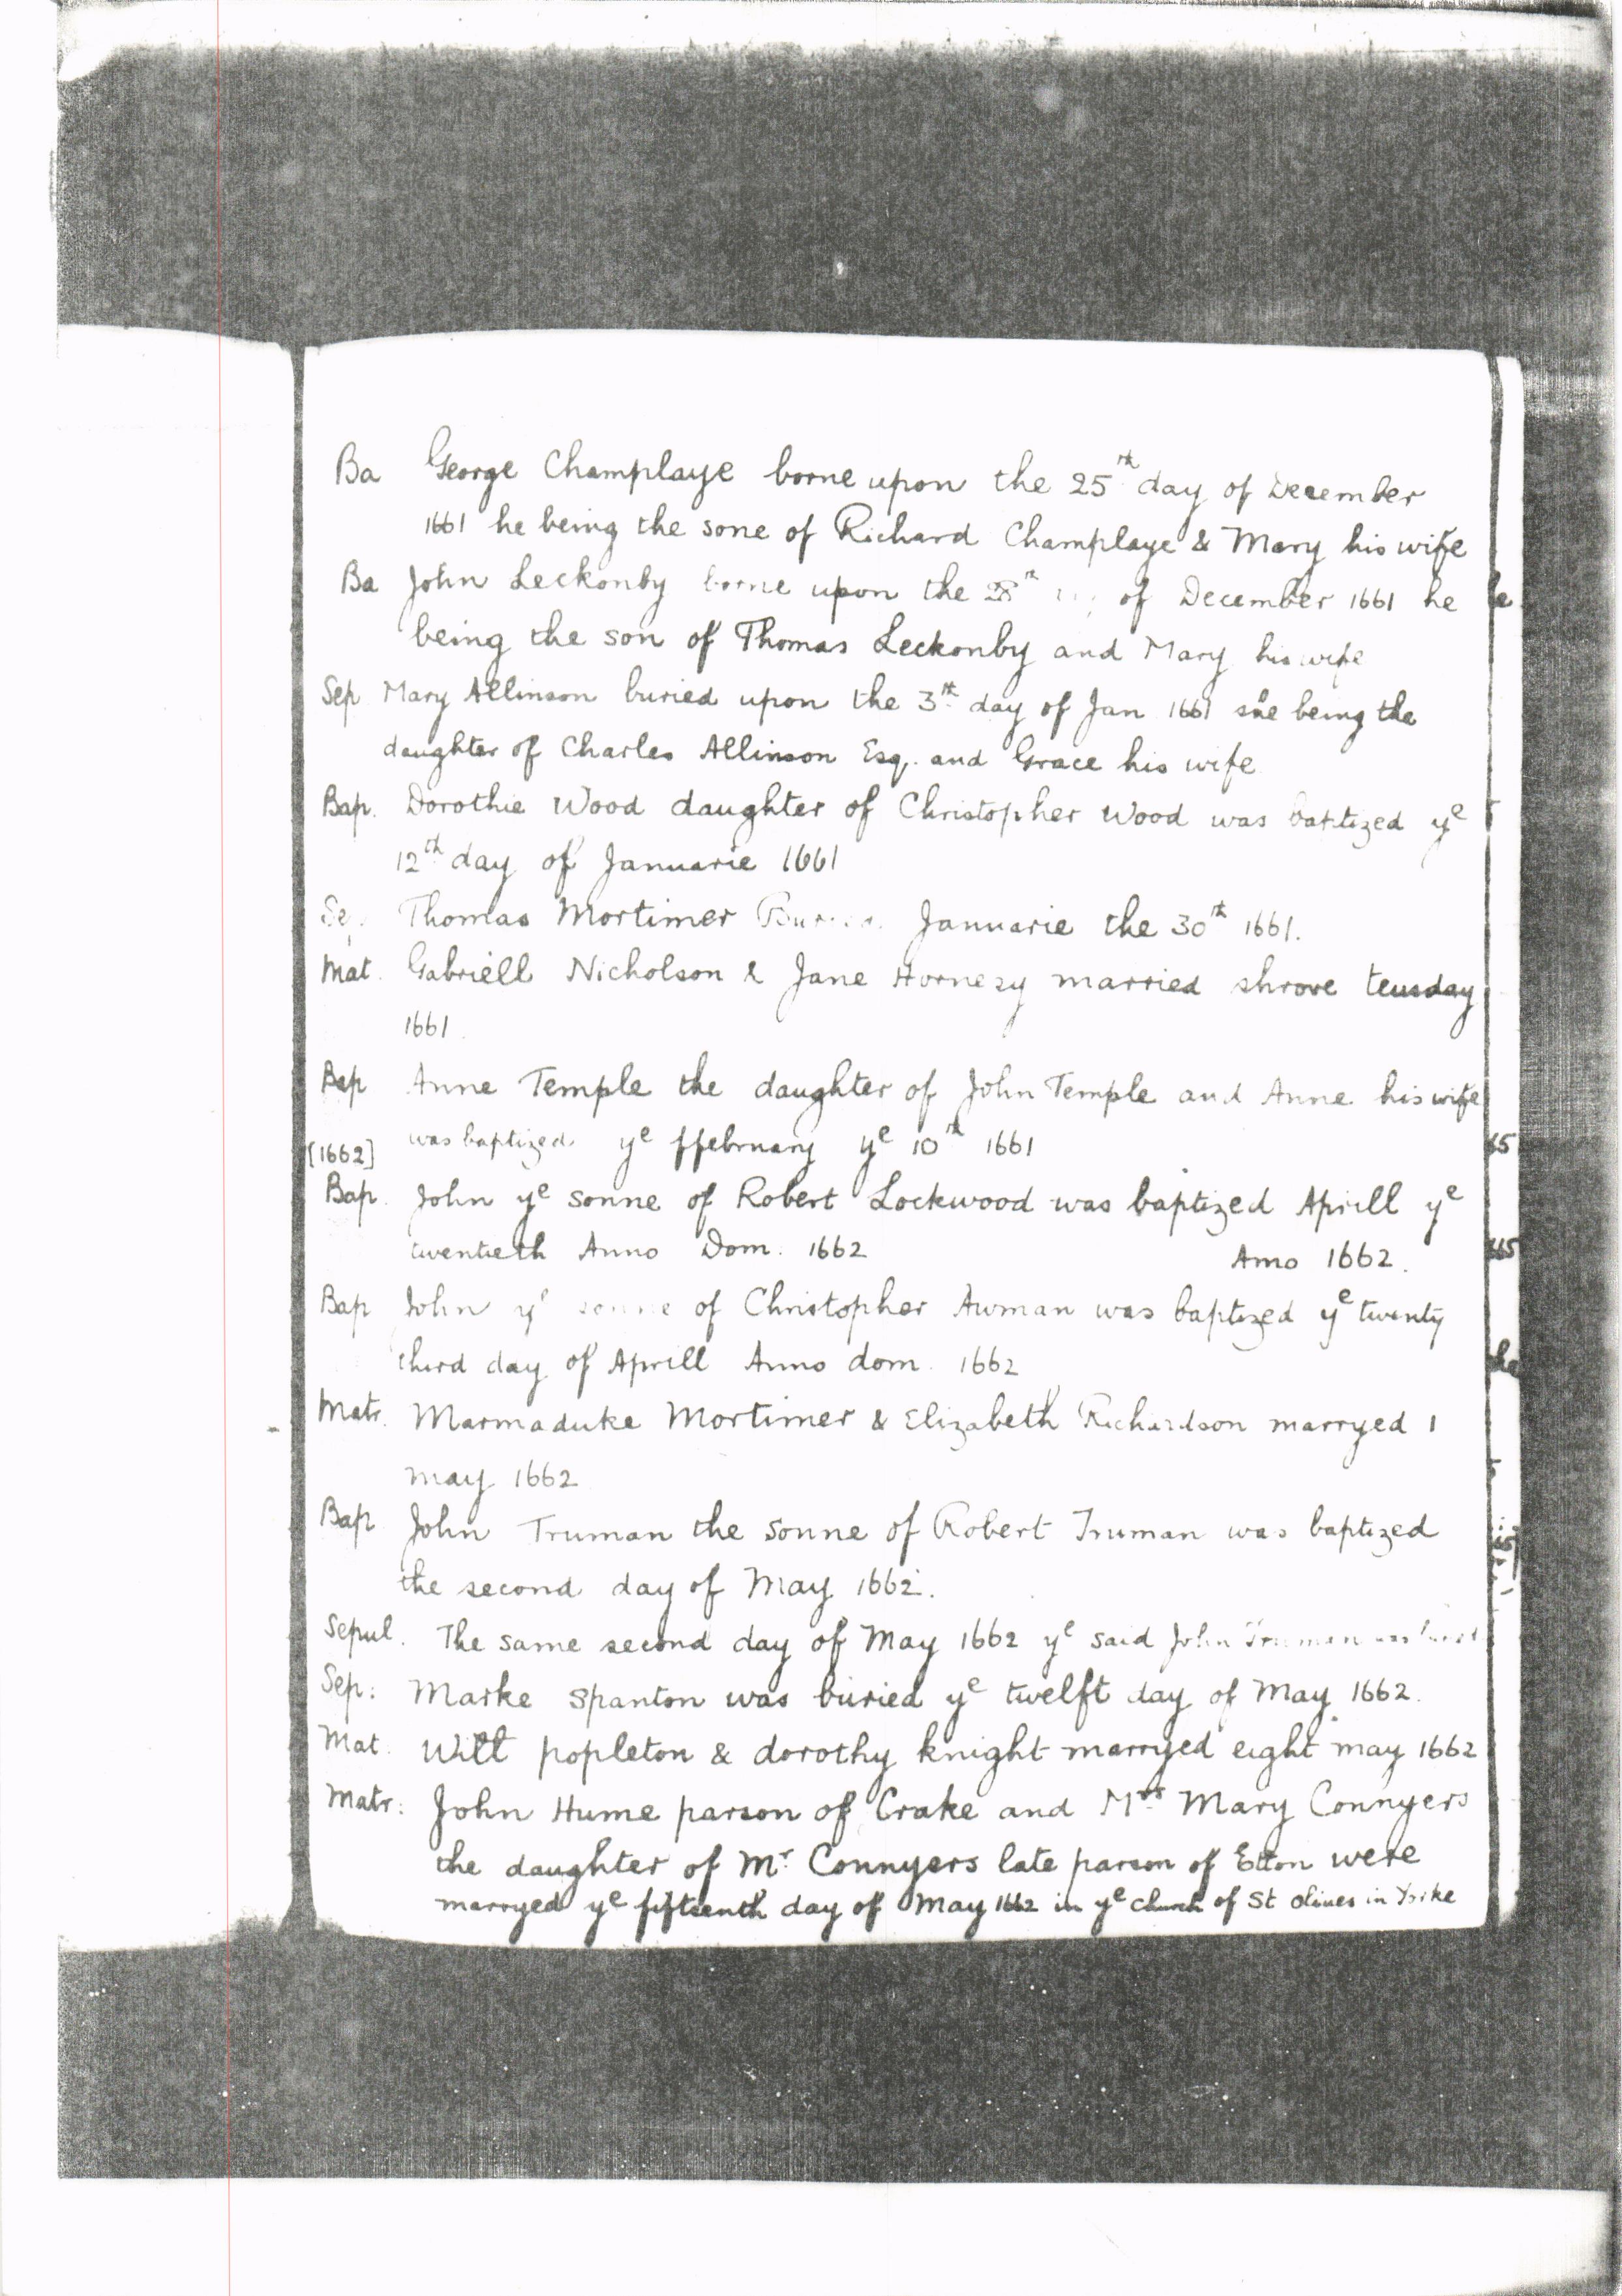 Ba George Champlaye borne upon the 25th day of December
1661 he being the sone of Richard Champlaye & Mary his wife
Ba John Leckonby borne upon the 28th of December 1661 he
being the son of Thomas Leckonby and Mary his wife
Sep Mary Allinson buried upon the 3rd day of Jan 1661 she being the
daughter of Charles Allinson Esq. and Grace his wife
Bap. Dorothie Wood daughter of Christopher Wood was baptized ye
12th day of Januarie 1661
Thomas Mortimer Januarie the 30th 1661.
Mat. Gabriell Nicholson & Jane married shrove teusday
1661.
Bap Anne Temple the daughter of John Temple and Anne his wife
was baptized ye ffebruary ye 10th 1661
[1662]
Bap. John ye sonne of Robert Lockwood was baptized Aprill ye
twentieth Anno Dom. 1662 Anno 1662.
Bap John ye sonne of Christopher Awman was baptized ye twenty
third day of Aprill Anno dom. 1662
Matr. Marmaduke Mortimer & Elizabeth Richardson marryed 1
May 1662
Bap John Truman the sonne of Robert Truman was baptized
the second day of May 1662.
Sepul. The same second day of May 1662 ye said John Truman was
Sep: Marke Spanton was buried ye twelft day of May 1662.
Mat. Will popleton & dorothy knight marryed eight may 1662
Matr: John Hume parson of Crake and Mrs Mary Connyers
the daughter of Mr. Connyers late parson of Etton were
marryed ye fifteenth day of May 1662 in ye church of St Olives in Yorke